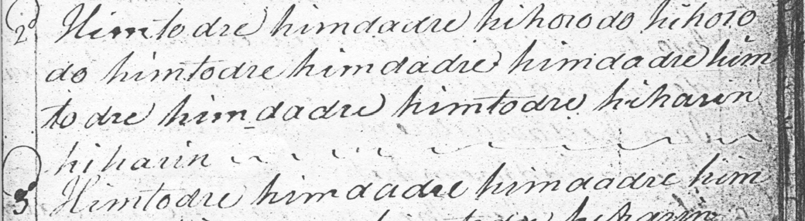 2d Himtodre himdadre hihorodo hihoro
do himtodre himdadre himdadre him
todre himdadre himtodre hiharin
hiharin
3d Himtodre himdadre himdadre him